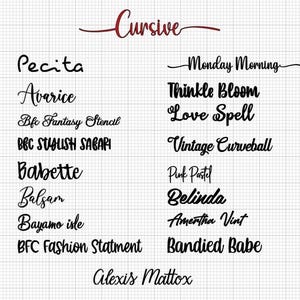 Cursive
Pecita
Monday Morning
Avarice
Thinkle Bloom
Bfc Fantasy Stencil
Love Spell
BBC STYLISH SAFARI
Vintage Curveball
Babette
Pink Pastel
Balsam
Belinda
Bayamo isle
Amertha Vint
BFC Fashion Statment
Bandied Babe
Alexis Mattox